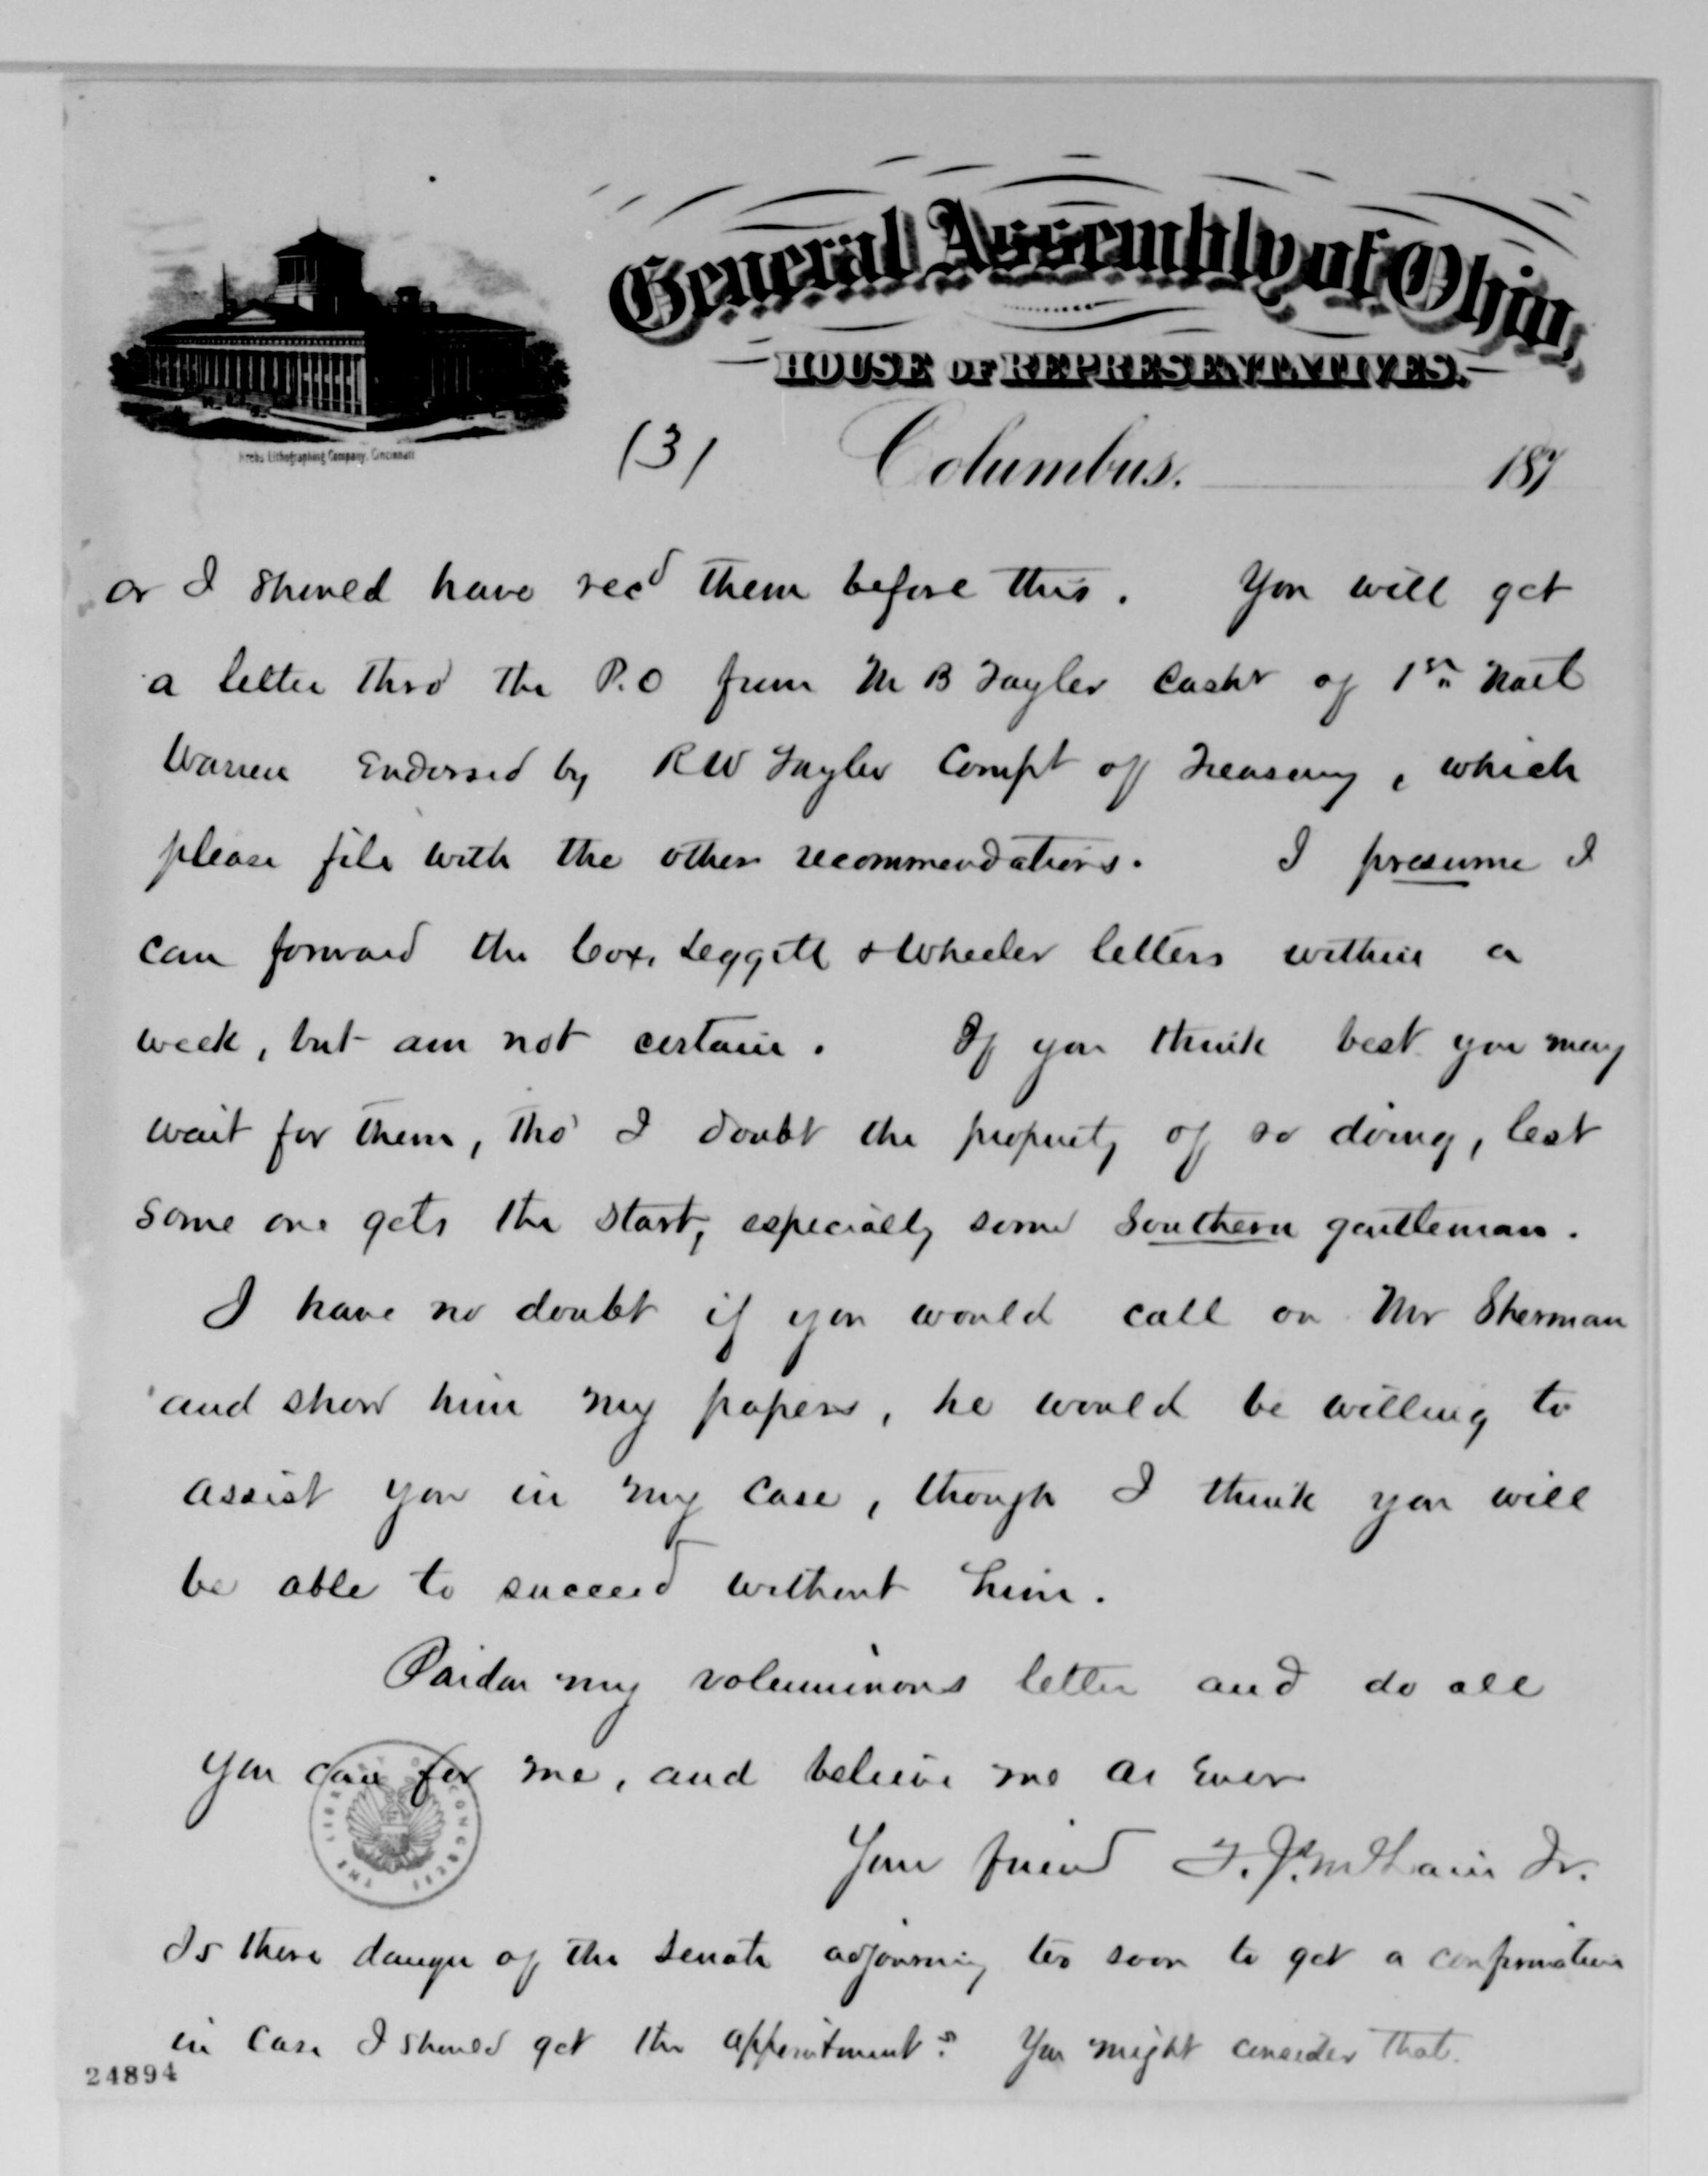 General Assembly of Ohio,
HOUSE OF REPRESENTATIVES.
Krebs Lithographing Company, Cincinnati
(3) Columbus. 187
or I should have recd them before this. You will get
a letter thro the P.O from M B Tayler Cashr of 1st Natl
Warren Endorsed by R W Tayler Compt of Treasury, which
please file with the other recommendations. I presume I
can forward the Cox, Leggett & Wheeler letters within a
week, but am not certain. If you think best you may
wait for them, tho' I doubt the propriety of so doing, lest
some one gets the start, especially some Southern gentleman.
I have no doubt if you would call on Mr Sherman
and show him my papers, he would be willing to
assist you in my case, though I think you will
be able to succeed without him.
Pardon my voluminous letter and do all
you can for me, and believe me as ever
Your friend T. J. McLain Jr.
THE LIBRARY OF CONGRESS
Is there danger of the Senate adjourning too soon to get a confirmation
in case I should get the appointment? You might consider that.
24894